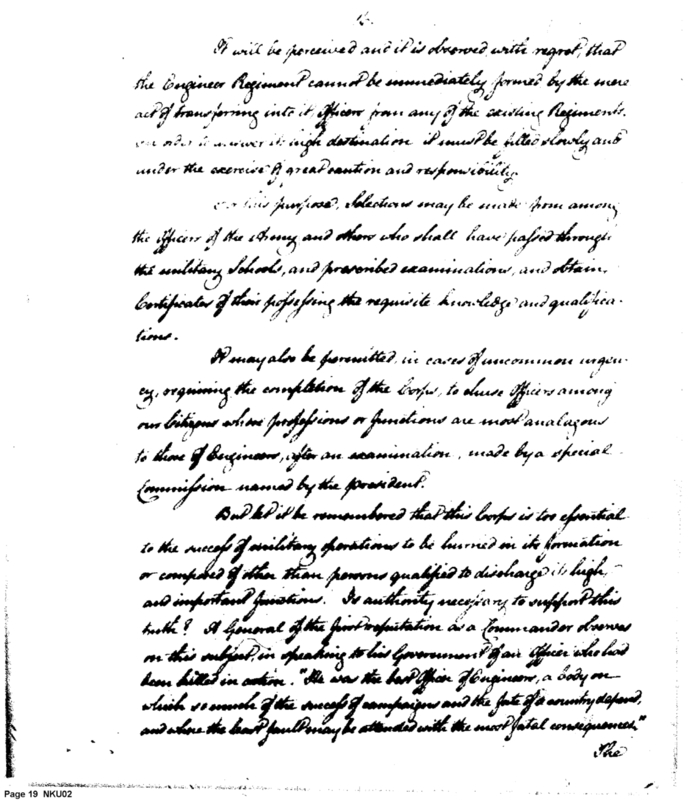 It will be perceived and it is observed with regret, that
the Engineer Regiment cannot be immediately formed by the mere
act of transferring into it officers from any of the existing Regiments.
in order to answer its high destination it must be filled slowly and
under the exercise of great caution and responsibility.
For this purpose, Selections may be made from among
the officers of the Army and others who shall have passed through
the military Schools, and prescribed examinations, and obtain,
Certificates of their possessing the requisite knowledge and qualifica-
tions.
It may also be permitted, in cases of uncommon urgen-
cy, requiring the completion of the Corps, to chuse Officers among
our Citizens whose professions or functions are most analagous
to those of Engineers, after an examination, made by a special
Commission named by the president.
But let it be remembered that this Corps is too essential
to the success of military operations to be hurried in its formation
or composed of other than persons qualified to discharge its high
and important functions. Is authority necessary to support this
truth? A General of the first reputation as a Commander observes
on this subject, in speaking to his Government of an Officer who had
been killed in action. "He was the best Officer of Engineers, a body on
which so much of the success of campaigns and the fate of a country depend,
and where the least fault may be attended with the most fatal consequences."
The
Page 19 NKU02